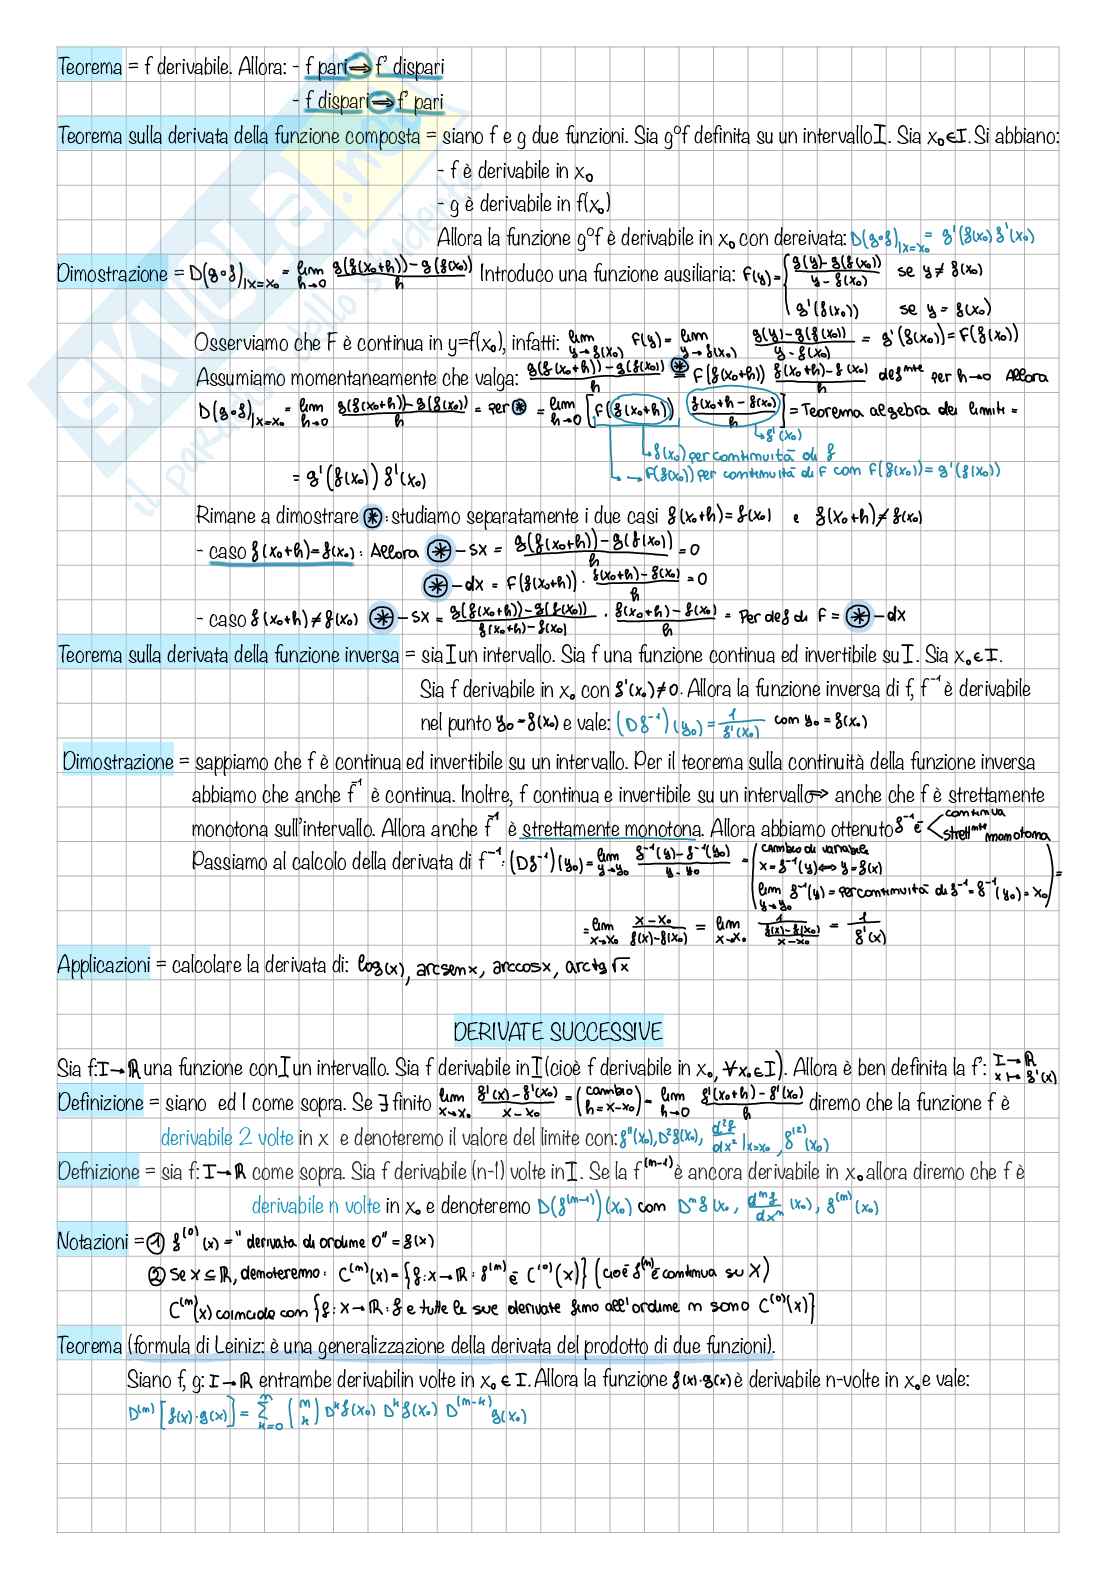 Teorema = f derivabile. Allora: - f pari ⇒ f' dispari
- f dispari ⇒ f' pari
Teorema sulla derivata della funzione composta = siano f e g due funzioni. Sia g°f definita su un intervallo I. Sia x₀ ∈ I. Si abbiano:
- f è derivabile in x₀
- g è derivabile in f(x₀)
Allora la funzione g°f è derivabile in x₀ con dereivata: D(g∘f)|x=x₀ = g'(f(x₀)) f'(x₀)
Dimostrazione = D(g∘f)|x=x₀ = lim h→0 g(f(x₀+h))-g(f(x₀)) / h Introduco una funzione ausiliaria: F(y) = { g(y)-g(f(x₀)) / y-f(x₀) se y≠f(x₀)
g'(f(x₀)) se y = f(x₀)
Osserviamo che F è continua in y=f(x₀), infatti: lim y→f(x₀) F(y) = lim y→f(x₀) g(y)-g(f(x₀)) / y-f(x₀) = g'(f(x₀)) = F(f(x₀))
Assumiamo momentaneamente che valga: g(f(x₀+h))-g(f(x₀)) / h ⊛= F(f(x₀+h)) f(x₀+h)-f(x₀) / h defᵐᵗᵉ per h→0 Allora
D(g∘f)|x=x₀ = lim h→0 g(f(x₀+h))-g(f(x₀)) / h = per ⊛ = lim h→0 [F(f(x₀+h)) f(x₀+h-f(x₀) / h] = Teorema algebra dei limiti =
↳ f'(x₀)
↳ f(x₀) per continuità di f
↳→ F(f(x₀)) per continuità di F con F(f(x₀)) = g'(f(x₀))
= g'(f(x₀)) f'(x₀)
Rimane a dimostrare ⊛: studiamo separatamente i due casi f(x₀+h)=f(x₀) e f(x₀+h)≠f(x₀)
- caso f(x₀+h)=f(x₀): Allora ⊛-sx = g(f(x₀+h))-g(f(x₀)) / h = 0
⊛-dx = F(f(x₀+h)) · f(x₀+h)-f(x₀) / h = 0
- caso f(x₀+h)≠f(x₀) ⊛-sx = g(f(x₀+h))-g(f(x₀)) / f(x₀+h)-f(x₀) · f(x₀+h)-f(x₀) / h = Per def di F = ⊛-dx
Teorema sulla derivata della funzione inversa = sia I un intervallo. Sia f una funzione continua ed invertibile su I. Sia x₀ ∈ I.
Sia f derivabile in x₀ con f'(x₀)≠0. Allora la funzione inversa di f, f⁻¹ è derivabile
nel punto y₀=f(x₀) e vale: (Df⁻¹)(y₀) = 1 / f'(x₀) con y₀=f(x₀)
Dimostrazione = sappiamo che f è continua ed invertibile su un intervallo. Per il teorema sulla continuità della funzione inversa
abbiamo che anche f⁻¹ è continua. Inoltre, f continua e invertibile su un intervallo ⇒ anche che f è strettamente
monotona sull'intervallo. Allora anche f⁻¹ è strettamente monotona. Allora abbiamo ottenuto f⁻¹ è < continua
strettᵐᵗᵉ monotona
Passiamo al calcolo della derivata di f⁻¹: (Df⁻¹)(y₀) = lim y→y₀ f⁻¹(y)-f⁻¹(y₀) / y-y₀ = (cambio di variabile
x = f⁻¹(y) ⟺ y=f(x)
lim y→y₀ f⁻¹(y) = per continuità di f⁻¹ = f⁻¹(y₀) = x₀) =
= lim x→x₀ x-x₀ / f(x)-f(x₀) = lim x→x₀ 1 / f(x)-f(x₀) / x-x₀ = 1 / f'(x)
Applicazioni = calcolare la derivata di: log(x), arcsenx, arccosx, arctg√x
DERIVATE SUCCESSIVE
Sia f: I→ℝ una funzione con I un intervallo. Sia f derivabile in I (cioè f derivabile in x₀, ∀x₀∈I). Allora è ben definita la f': I→ℝ x↦f'(x)
Definizione = siano ed I come sopra. Se ∃ finito lim x→x₀ f'(x)-f'(x₀) / x-x₀ = (cambio h=x-x₀) = lim h→0 f'(x₀+h)-f'(x₀) / h diremo che la funzione f è
derivabile 2 volte in x e denoteremo il valore del limite con: f''(x₀), D²f(x₀), d²f/dx² |x=x₀, f⁽²⁾(x₀)
Defnizione = sia f: I→ℝ come sopra. Sia f derivabile (n-1) volte in I. Se la f⁽ⁿ⁻¹⁾ è ancora derivabile in x₀ allora diremo che f è
derivabile n volte in x₀ e denoteremo D(f⁽ⁿ⁻¹⁾)(x₀) con Dⁿf(x₀, dⁿf/dxⁿ (x₀), f⁽ⁿ⁾(x₀)
Notazioni = ① f⁽⁰⁾(x) = "derivata di ordine 0" = f(x)
② Se X⊆ℝ, denoteremo: C⁽ⁿ⁾(x) = {f: X→ℝ: f⁽ⁿ⁾ è C⁽⁰⁾(X)} (cioè f⁽ⁿ⁾ è continua su X)
C⁽ⁿ⁾(x) coincide con {f: X→ℝ: f e tutte le sue derivate fino all'ordine n sono C⁽⁰⁾(x)}
Teorema (formula di Leiniz: è una generalizzazione della derivata del prodotto di due funzioni).
Siano f, g: I→ℝ entrambe derivabilin volte in x₀ ∈ I. Allora la funzione f(x)·g(x) è derivabile n-volte in x₀ e vale:
D⁽ⁿ⁾[f(x)·g(x)] = Σ k=0 n (n k) Dᵏf(x₀) Dᵏf(x₀) D⁽ⁿ⁻ᵏ⁾g(x₀)
SKUOLA.net